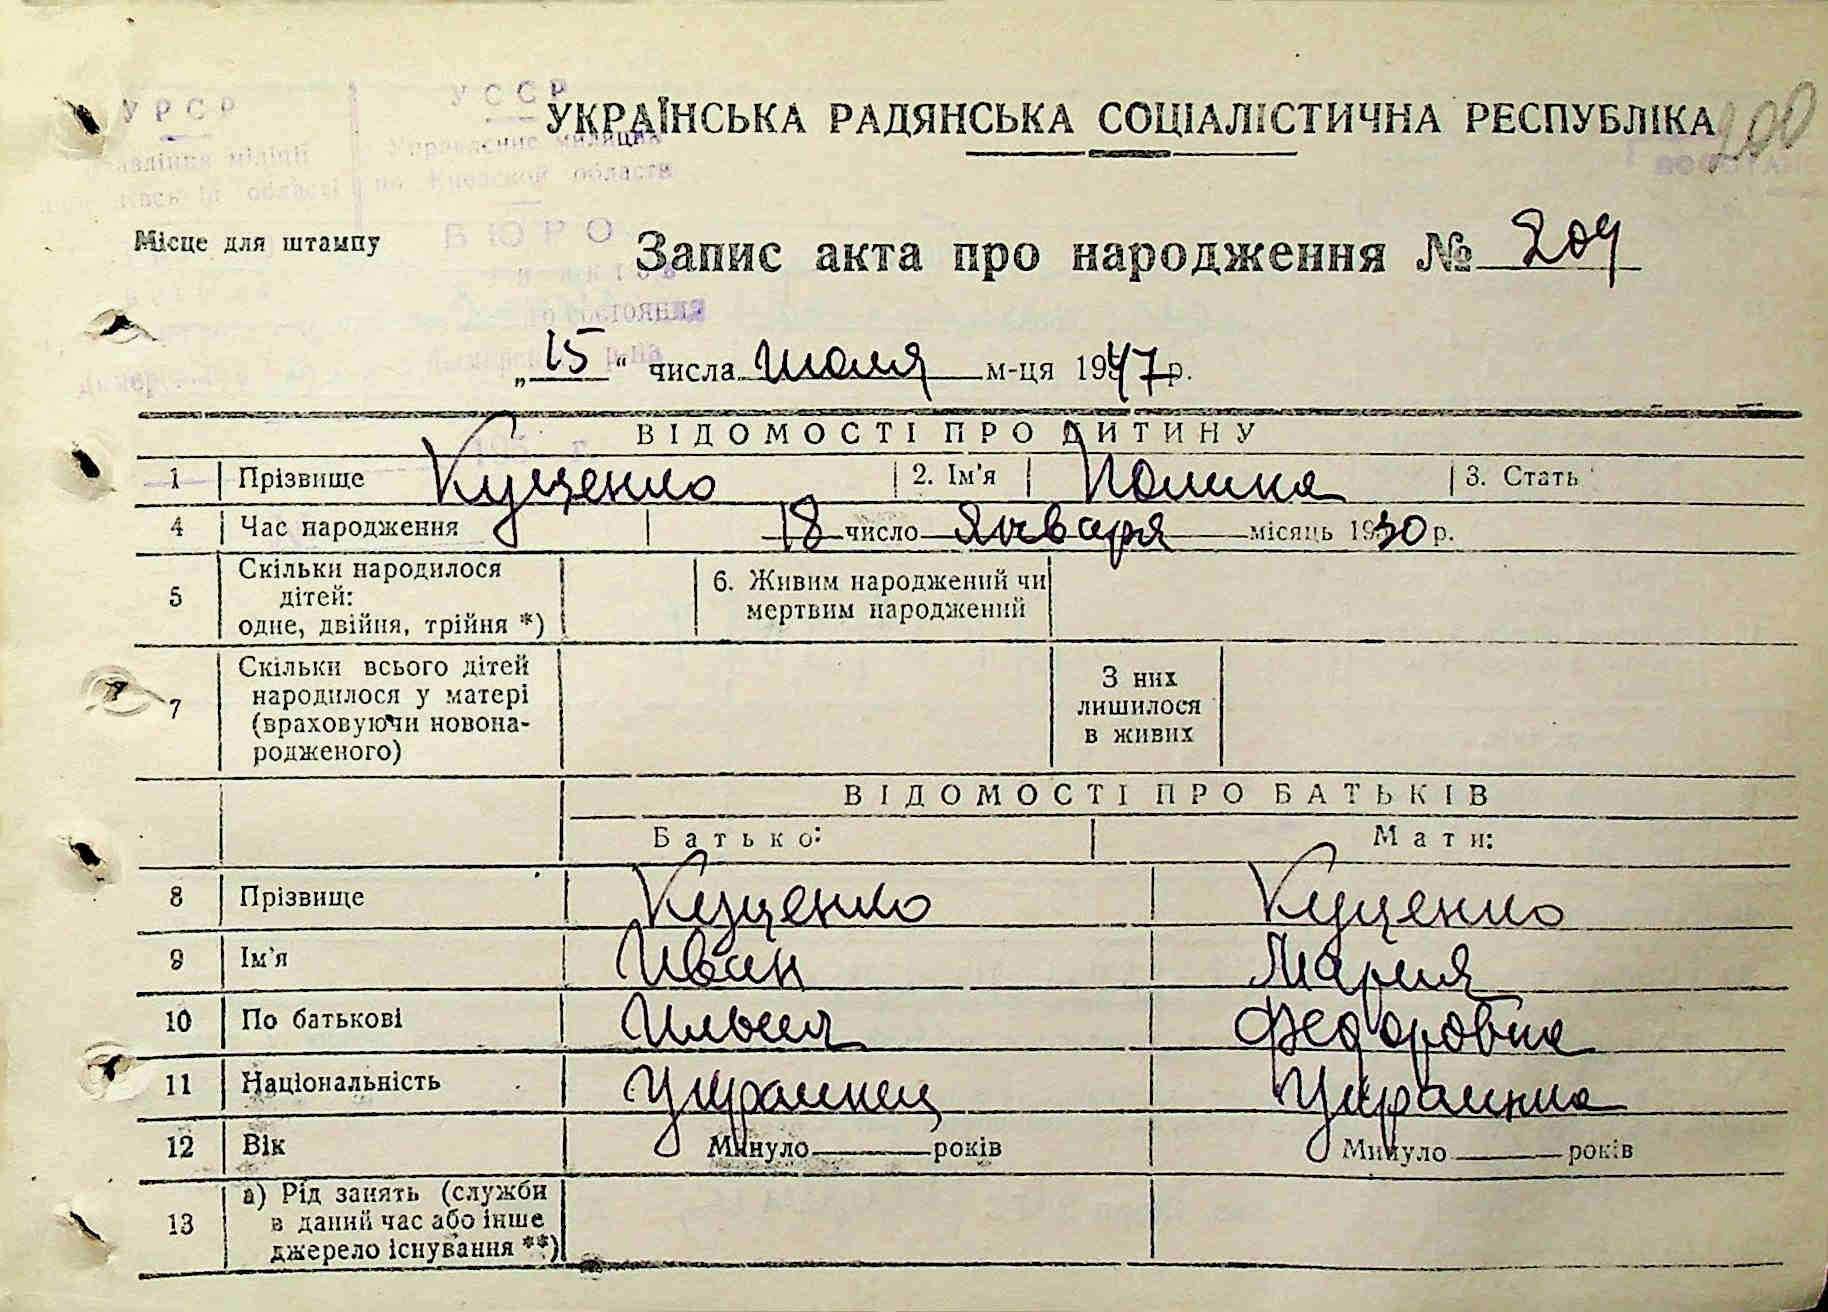 УРСР УССР
УКРАЇНСЬКА РАДЯНСЬКА СОЦІАЛІСТИЧНА РЕСПУБЛІКА 200
Управление милиции
області по Киевской области
Місце для штампу БЮРО
Запис акта про народження № 209
„15“ числа июля м-ця 1947 р.
ВІДОМОСТІ ПРО ДИТИНУ
1 Прізвище Куценко 2. Ім'я Полина 3. Стать
4 Час народження 18 число января місяць 1930 р.
5 Скільки народилося дітей: одне, двійня, трійня *) 6. Живим народжений чи мертвим народжений
7 Скільки всього дітей народилося у матері (враховуючи новонародженого) З них лишилося в живих
ВІДОМОСТІ ПРО БАТЬКІВ
Батько: Мати:
8 Прізвище Куценко Куценко
9 Ім'я Иван Мария
10 По батькові Ильич Федоровна
11 Національність Украинец Украинка
12 Вік Минуло років Минуло років
13 а) Рід занять (служби в даний час або інше джерело існування **)